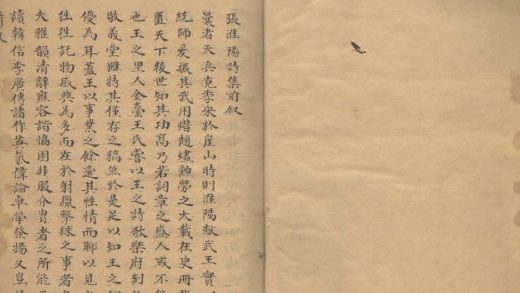 張淮陽詩集前敘
曩者天兵克季宋於崖山時則淮陽獻武王實
統師爰振其武用熸趙燼勲勞之大載在史冊
匱天下後世知其功高乃若詞章之盛人或不
也王之里人金臺王氏嘗以王之詩歌樂府刻
敬義堂雖特其僅存之稿然於是足以知王之
優為耳蓋王以事業之餘適其性情而聊以見
往往託物感興為多而在於射獵擊毬之事者
夫雅韻清辭雍容諧協固非服介胄者之所能
讀韓信李廣傳諸作英氣偉論卓犖發揚又豈